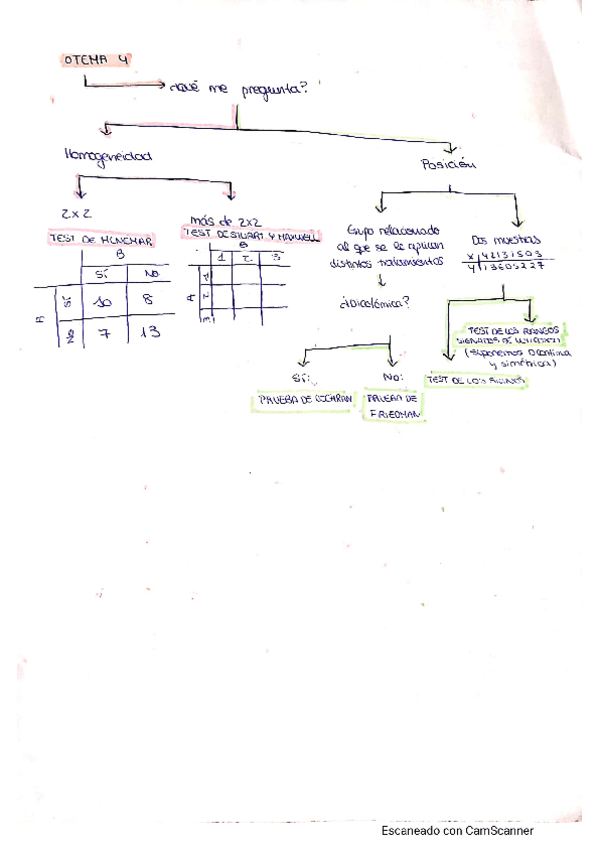 OTEMA 4
¿Qué me pregunta?
Homogeneidad
Posición
2x2
TEST DE MCNEMAR
B
SÍ NO
A
SÍ 10 8
NO 7 13
más de 2x2
TEST DE STUART Y MAXWELL
B
1 2 3
A
1
2
3
Grupo relacionado
al que se le aplican
distintos tratamientos
¿Dicotómica?
SÍ:
PRUEBA DE COCHRAN
NO:
PRUEBA DE
FRIEDMAN
Dos muestras
X
Y
TEST DE LOS RANGOS
SIGNADOS DE WILCOXON
(suponemos D continua
y simétrica)
TEST DE LOS SIGNOS
Escaneado con CamScanner